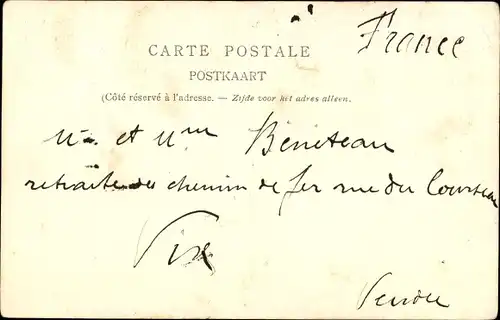 France
CARTE POSTALE
POSTKAART
(Côté réservé à l'adresse. — Zijde voor het adres alleen.
Mr et Mme Béneteau
retraite des chemin de fer rue du
Vix
Vendée